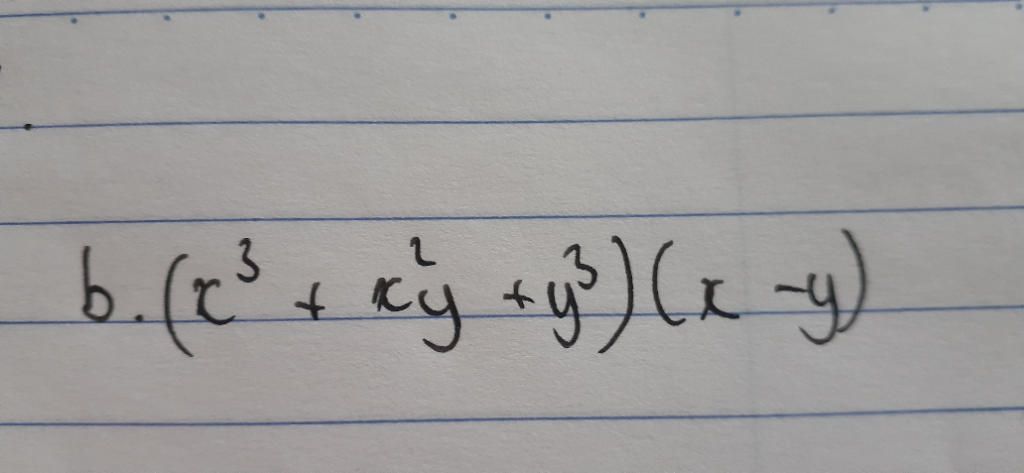 b. (x³ + x²y + y³)(x - y)